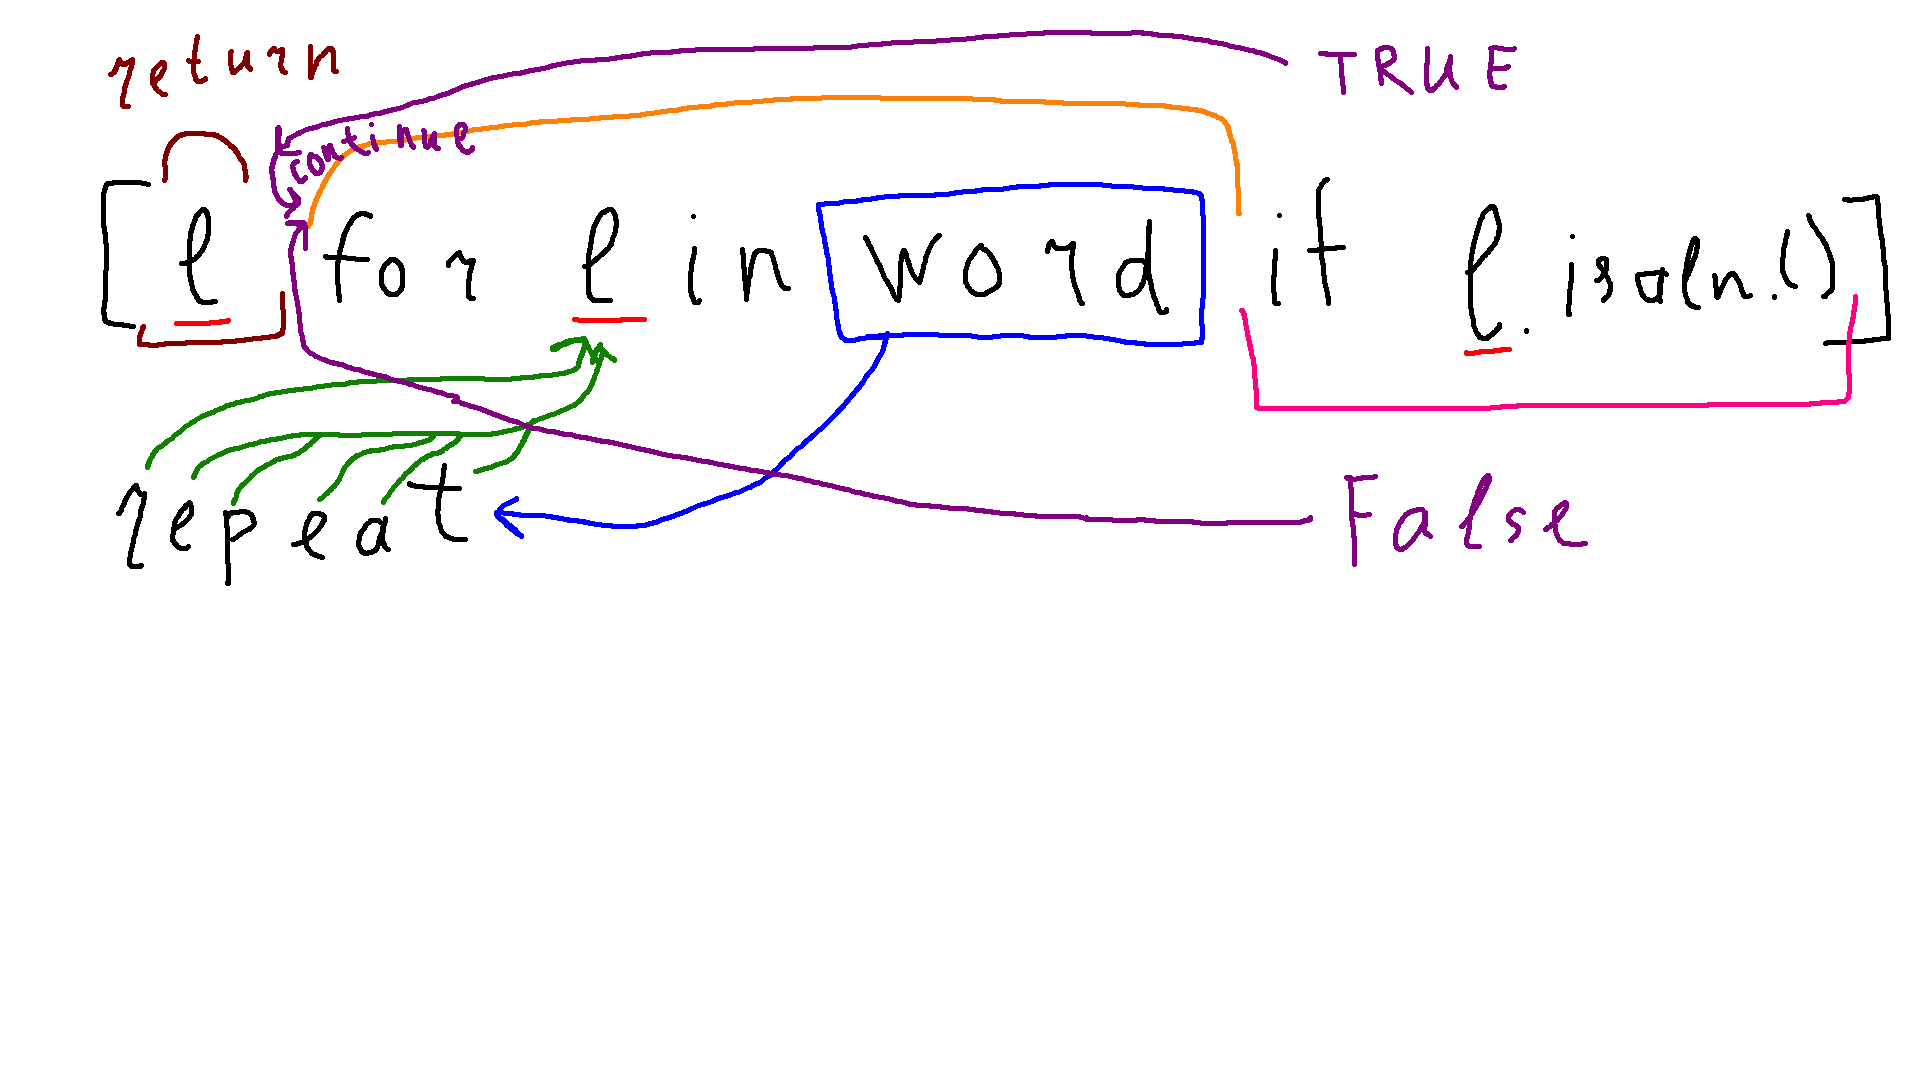 return
TRUE
continue
[l for l in word if l.isaln.()]
repeat
False